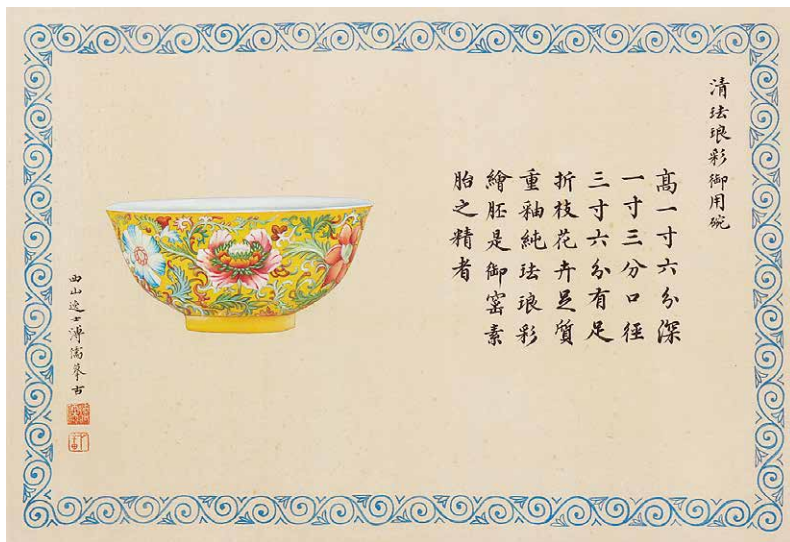 清珐琅彩御用碗
高一寸六分深
一寸三分口徑
三寸六分有足
折枝花卉足質
重釉純珐琅彩
繪胚是御窑素
胎之精者
西山逸士溥儒摹古